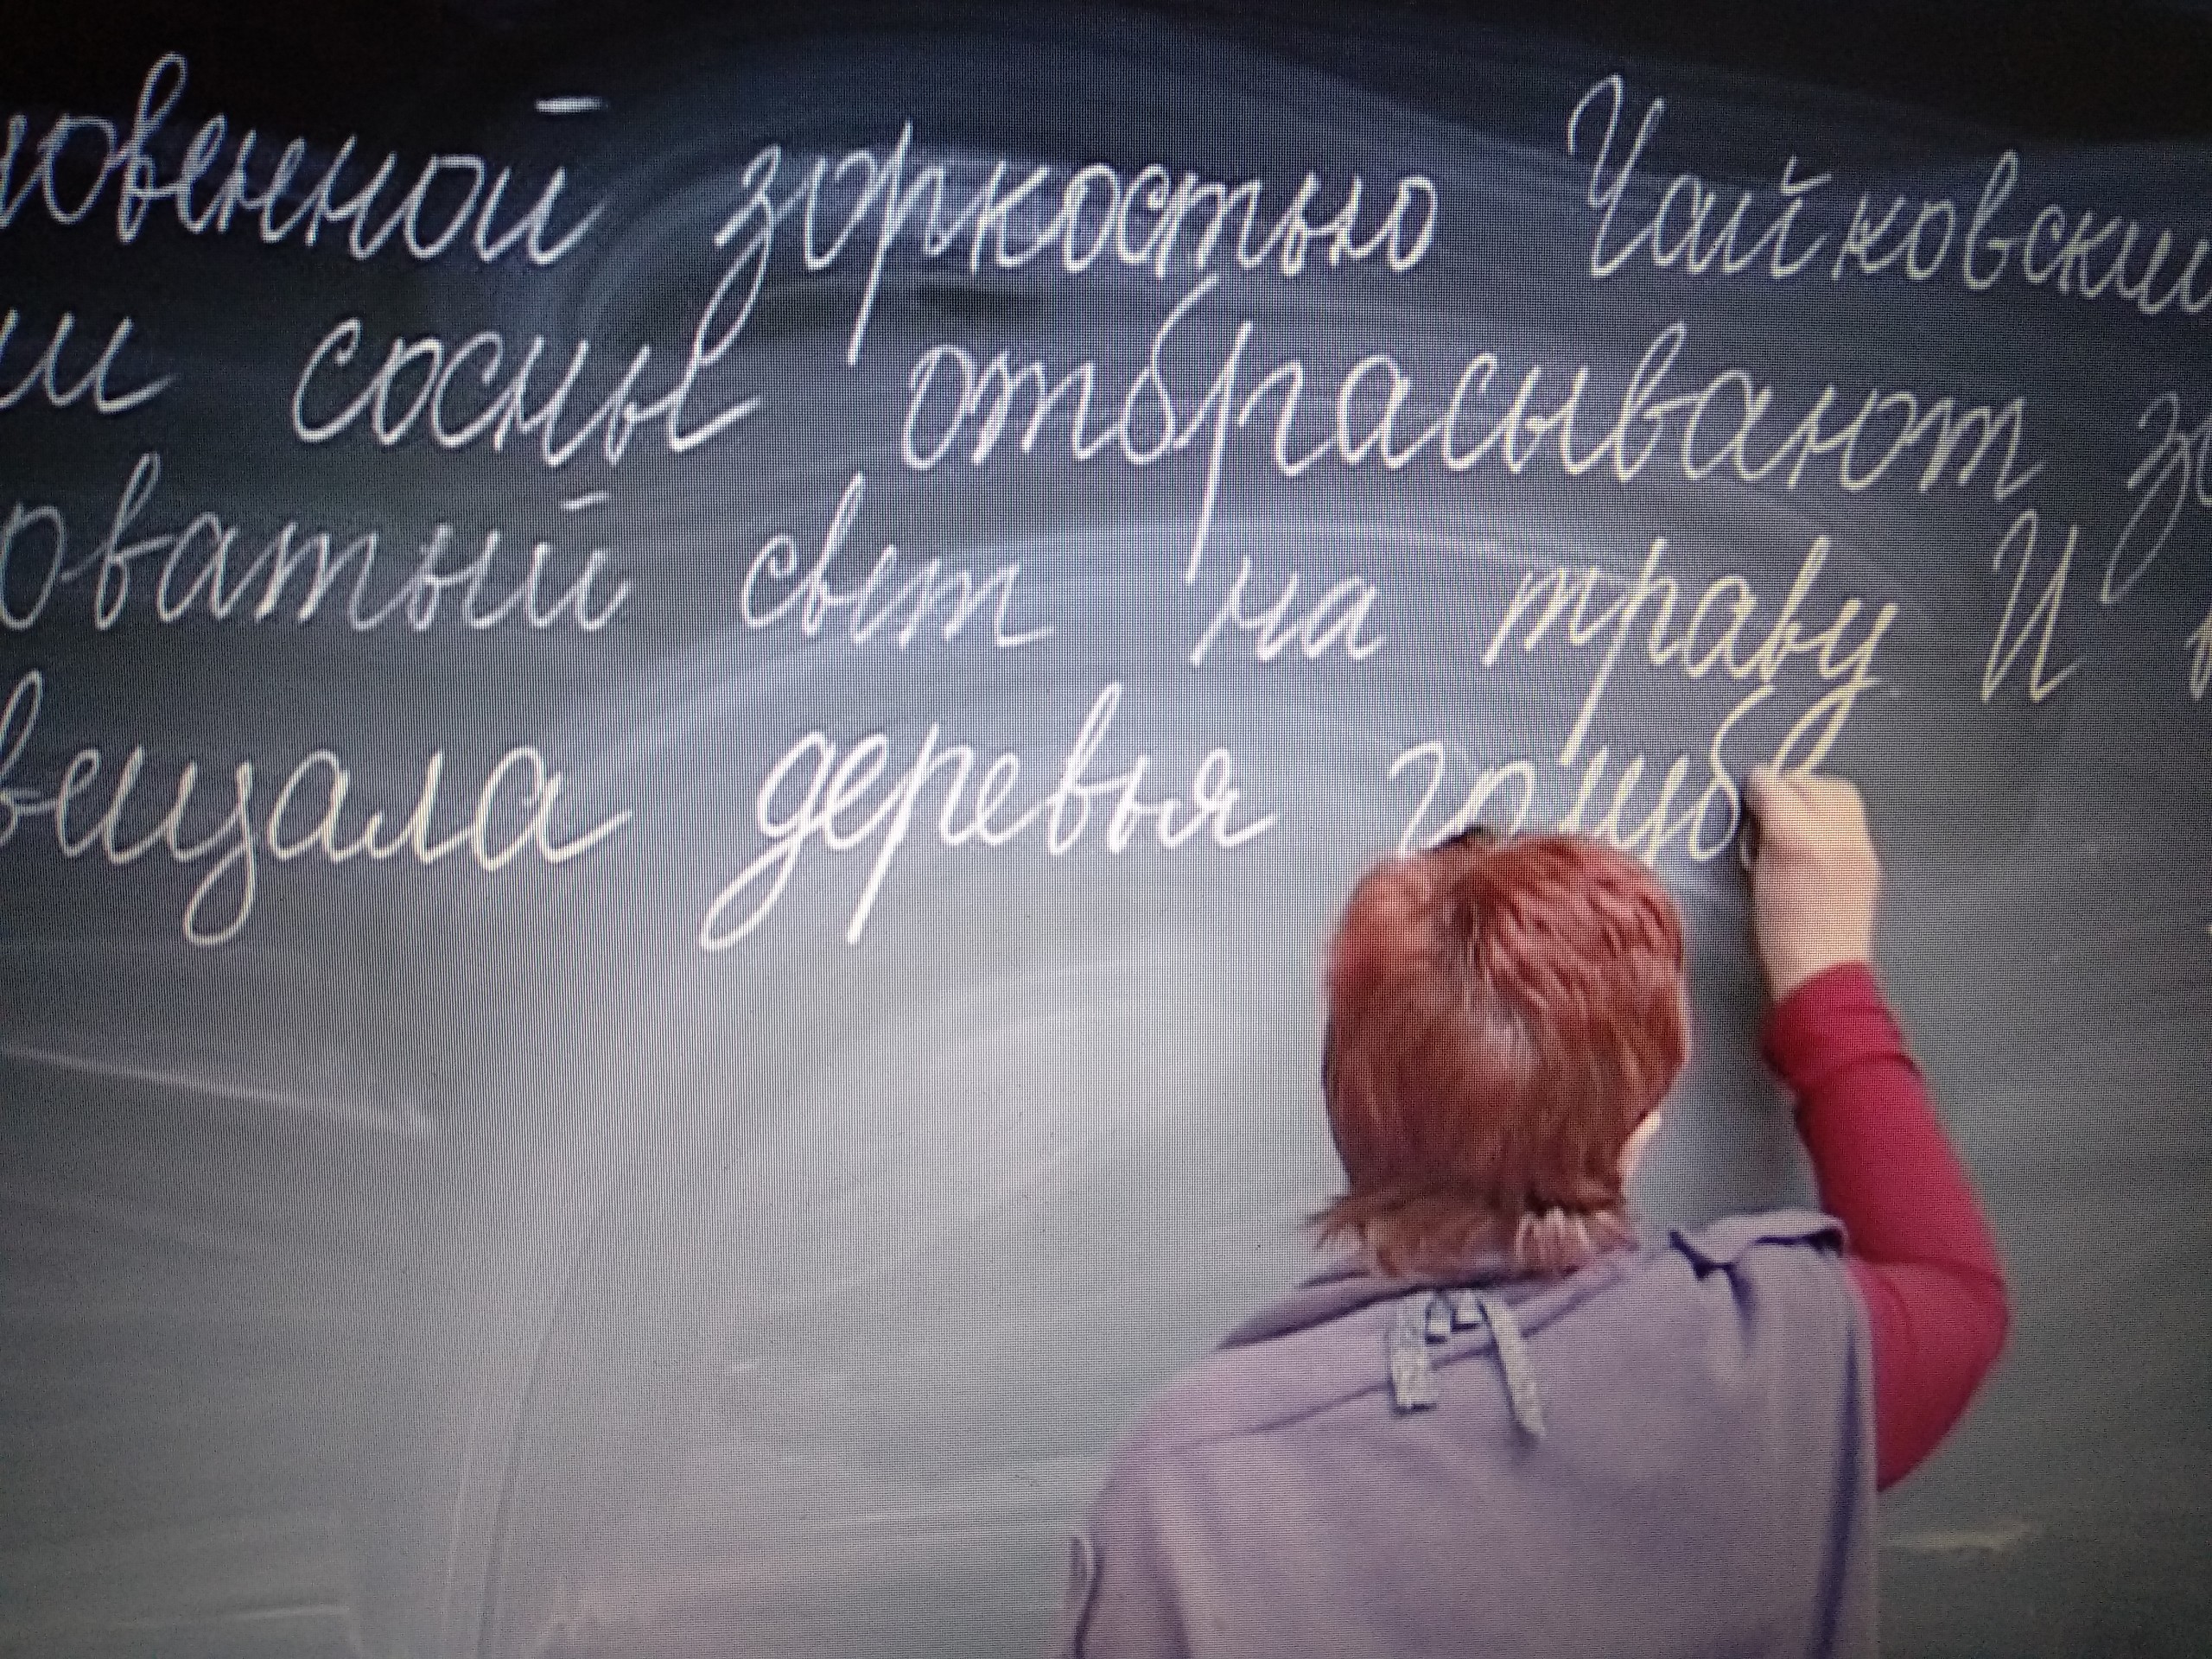 новенной зоркостью Чайковски
ми сосны отбрасывают зо
оватый свет на траву И
вещала деревья голуб